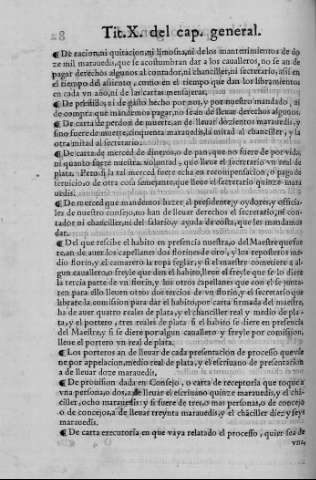 28 Tit.X. del cap. general.
¶ De racion, ni quitacion, ni limosna, ni de los mantenimientos de do
ze mil marauedis, que se acostumbran dar a los caualleros, no se an de
pagar derechos algunos al contador, ni chanciller, ni secretario, assi en
el tiempo del assiento, como en el tiempo que dan los libramientos
en cada vn año, ni de las cartas mensajeras,
¶ De prestido, ni de gasto hecho por nos, y por nuestro mandado, ni
de compra que mandemos pagar, no se an de lleuar derechos algunos.
¶ De carta de perdon de muerte an de lleuar dozientos marauedis, y
sino fuere de muerte, cinquenta marauedis, la mitad al chanciller, y la
otra mitad al secretario.
¶ De carta de merced de dineros, o de pan, que no fuere de por vida,
ni quanto fuere nuestra voluntad, que lleue el secretario vn real de
plata. Pero si la tal merced fuere echa en recompensacion, o pago de
seruicio, o de otra cosa semejante, que lleue el secretario quinze mara
uedis.
¶ De merced que mandemos hazer al presidente, y oydores, y officia
les de nuestro consejo, no han de lleuar derechos el secretario, ni con-
tador ni chanciller, ni del salario, y ayuda de costa, que les mandamos
dar.
¶ Del que rescibe el habito en presencia nuestra, o del Maestre que fue
re, an de auer los capellanes dos florines de oro, y los reposteros me-
dio florin, y el camarero la ropa seglar, y si el maestre cometiere a al-
gun cauallero, o freyle que den el habito, lleue el freyle que se lo diere
la tercia parte de vn florin, y los otros capellanes que con el se junta-
ren para ello lleuen otros dos tercios de vn florin, y el secretario que
librare la comission para dar el habito, por carta firmada del maestre,
ha de auer quatro reales de plata, y el chanciller real y medio de pla-
ta, y el portero, tres reales de plata si el habito se diere en presencia
del Maestre, y si se diere por algun cauallero y freyle por comission,
lleue el portero vn real de plata.
¶ Los porteros an de lleuar de cada presentacion de processo que vie
ne por appelacion, medio real de plata, y el escriuano de presentacion
a de lleuar doze marauedis.
¶ De prouision dada en Consejo, o carta de receptoria que toque a
vna persona, o dos, a de lleuar el escriuano quinze marauedis, y el chā-
ciller, ocho marauedis: y si fuere de tres, o mas personas, o de concejo
o de concejos, a de lleuar treynta marauedis, y el chāciller diez y seys
marauedis.
¶ De carta executoria en que vaya relatado el processo, quier sea de
vna,